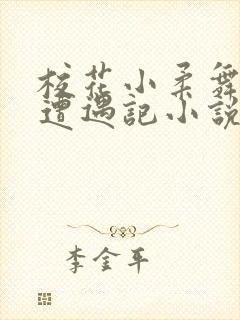 校花小柔舞
遭遇记小说
李金平